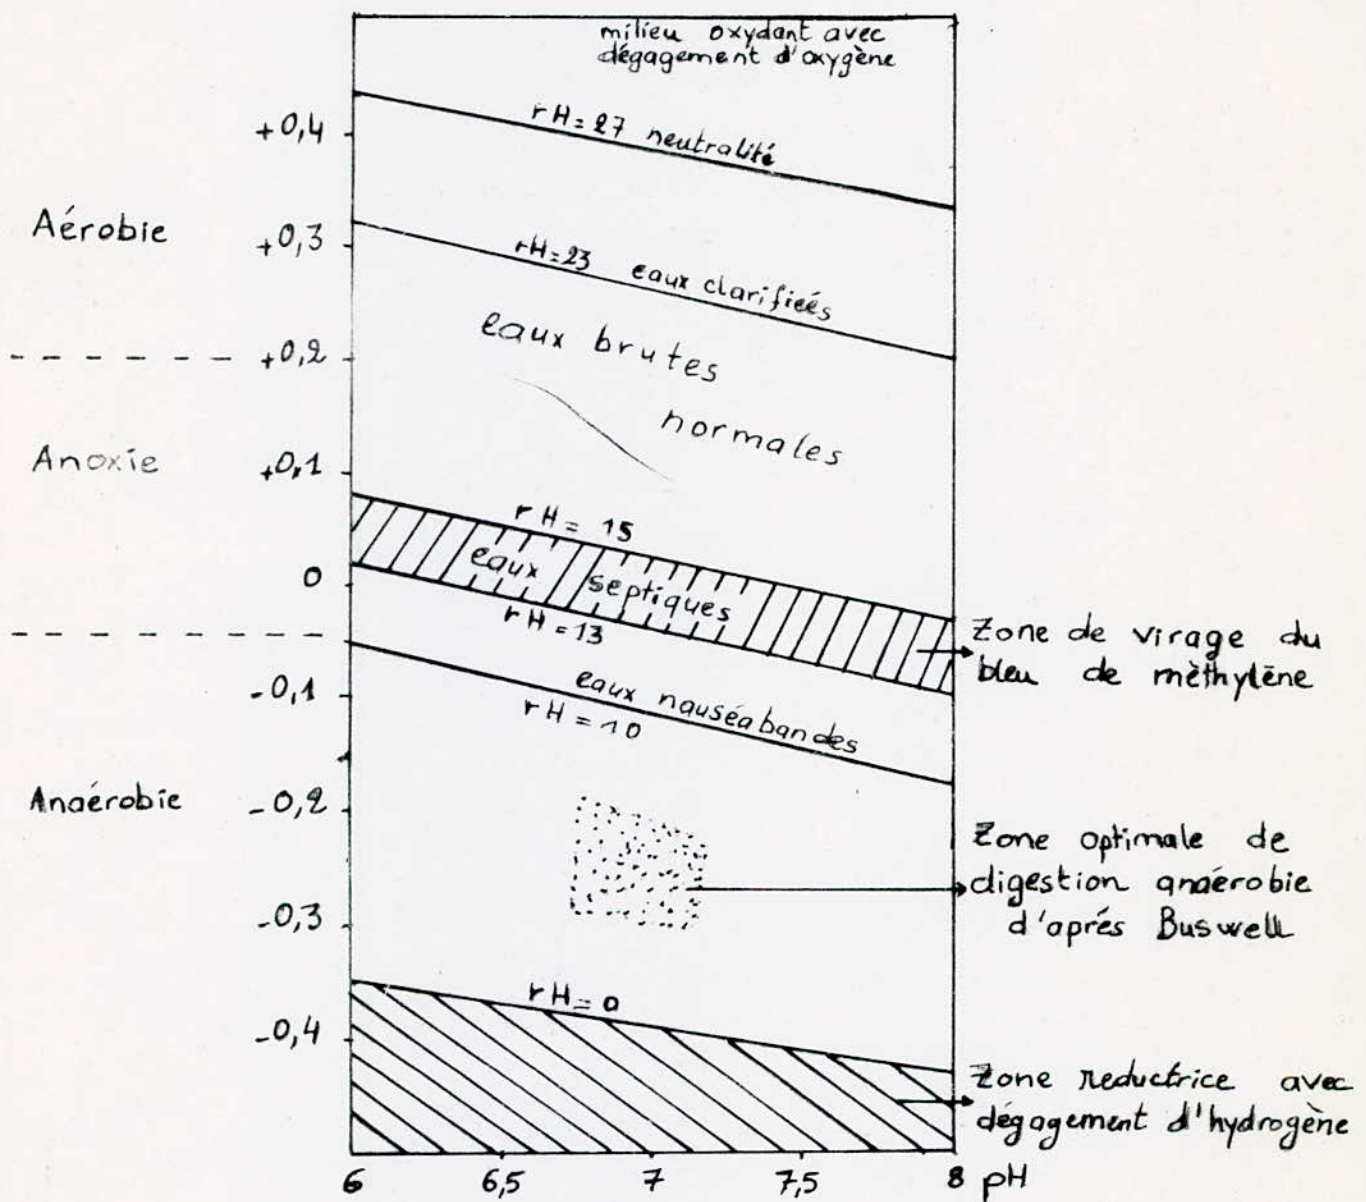 milieu oxydant avec
dégagement d'oxygène
+0,4
rH=27 neutralité
Aérobie
+0,3
rH=23 eaux clarifiées
+0,2
eaux brutes
normales
Anoxie
+0,1
rH= 15
eaux septiques
0
rH=13
Zone de virage du
bleu de mèthylène
-0,1
eaux nauséabandes
rH=10
Anaérobie
-0,2
Zone optimale de
digestion anaérobie
d'aprés Buswell
-0,3
rH=0
-0,4
Zone reductrice avec
dégagement d'hydrogène
6 6,5 7 7,5 8 pH